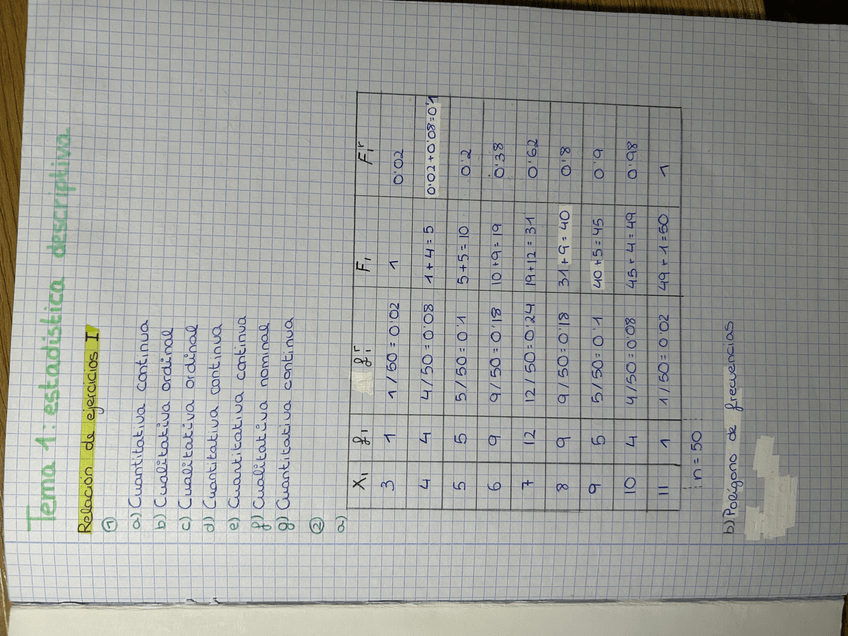 Tema 1: estadística descriptiva
Relación de ejercicios I
①
a) Cuantitativa continua
b) Cualitativa ordinal
c) Cualitativa ordinal
d) Cuantitativa continua
e) Cuantitativa continua
f) Cualitativa nominal
g) Cuantitativa continua
②
a)
Xi fi fiʳ Fi Fiʳ
3 1 1/50=0'02 1 0'02
4 4 4/50=0'08 1+4=5 0'02+0'08=0'1
5 5 5/50=0'1 5+5=10 0'2
6 9 9/50=0'18 10+9=19 0'38
7 12 12/50=0'24 19+12=31 0'62
8 9 9/50=0'18 31+9=40 0'8
9 5 5/50=0'1 40+5=45 0'9
10 4 4/50=0'08 45+4=49 0'98
11 1 1/50=0'02 49+1=50 1
n=50
b) Polígono de frecuencias